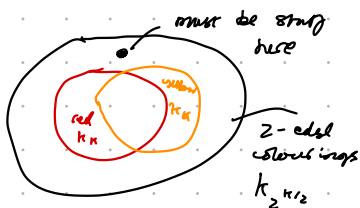 must be stuff
here
red
K_k
yellow
K_k
2-edge
colourings
K_2^{k/2}